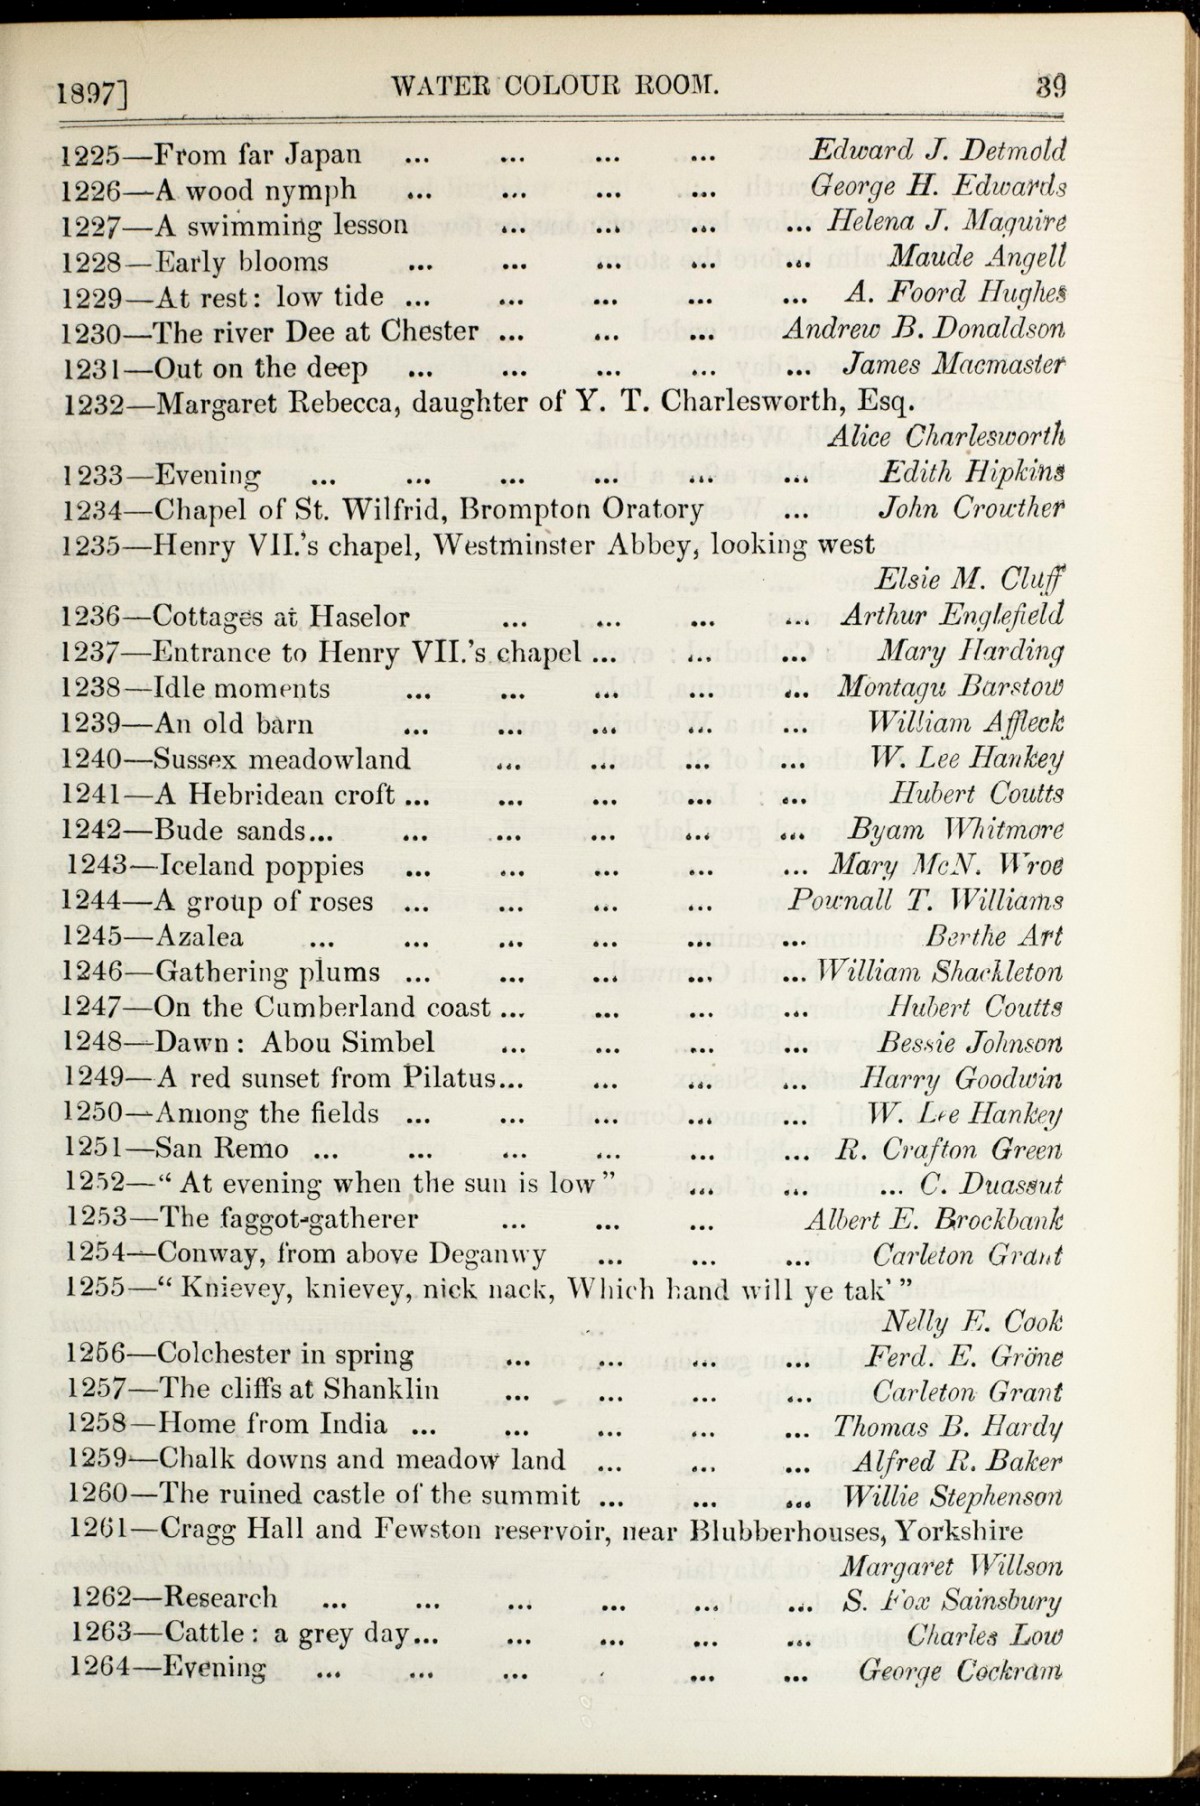 1897] WATER COLOUR ROOM. 39
1225—From far Japan ... ... ... ... Edward J. Detmold
1226—A wood nymph ... ... ... ... George H. Edwards
1227—A swimming lesson ... ... ... ... Helena J. Maguire
1228—Early blooms ... ... ... ... ... Maude Angell
1229—At rest: low tide ... ... ... ... ... A. Foord Hughes
1230—The river Dee at Chester ... ... ... Andrew B. Donaldson
1231—Out on the deep ... ... ... ... ... James Macmaster
1232—Margaret Rebecca, daughter of Y. T. Charlesworth, Esq.
Alice Charlesworth
1233—Evening ... ... ... ... ... ... Edith Hipkins
1234—Chapel of St. Wilfrid, Brompton Oratory ... John Crowther
1235—Henry VII.'s chapel, Westminster Abbey, looking west
Elsie M. Cluff
1236—Cottages at Haselor ... ... ... ... Arthur Englefield
1237—Entrance to Henry VII.'s chapel ... ... ... Mary Harding
1238—Idle moments ... ... ... ... ... Montagu Barstow
1239—An old barn ... ... ... ... ... William Affleck
1240—Sussex meadowland ... ... ... ... W. Lee Hankey
1241—A Hebridean croft ... ... ... ... ... Hubert Coutts
1242—Bude sands... ... ... ... ... ... Byam Whitmore
1243—Iceland poppies ... ... ... ... ... Mary McN. Wroe
1244—A group of roses ... ... ... ... Pownall T. Williams
1245—Azalea ... ... ... ... ... ... Berthe Art
1246—Gathering plums ... ... ... ... ... William Shackleton
1247—On the Cumberland coast ... ... ... ... Hubert Coutts
1248—Dawn: Abou Simbel ... ... ... ... Bessie Johnson
1249—A red sunset from Pilatus... ... ... ... Harry Goodwin
1250—Among the fields ... ... ... ... ... W. Lee Hankey
1251—San Remo ... ... ... ... ... ... R. Crafton Green
1252—“At evening when the sun is low” ... ... ... C. Duassut
1253—The faggot-gatherer ... ... ... Albert E. Brockbank
1254—Conway, from above Deganwy ... ... ... Carleton Grant
1255—“Knievey, knievey, nick nack, Which hand will ye tak'”
Nelly E. Cook
1256—Colchester in spring ... ... ... ... Ferd. E. Gröne
1257—The cliffs at Shanklin ... ... ... ... Carleton Grant
1258—Home from India ... ... ... ... ... Thomas B. Hardy
1259—Chalk downs and meadow land ... ... ... Alfred R. Baker
1260—The ruined castle of the summit ... ... ... Willie Stephenson
1261—Cragg Hall and Fewston reservoir, near Blubberhouses, Yorkshire
Margaret Willson
1262—Research ... ... ... ... ... ... S. Fox Sainsbury
1263—Cattle: a grey day... ... ... ... ... Charles Low
1264—Evening ... ... ... . ... ... George Cockram